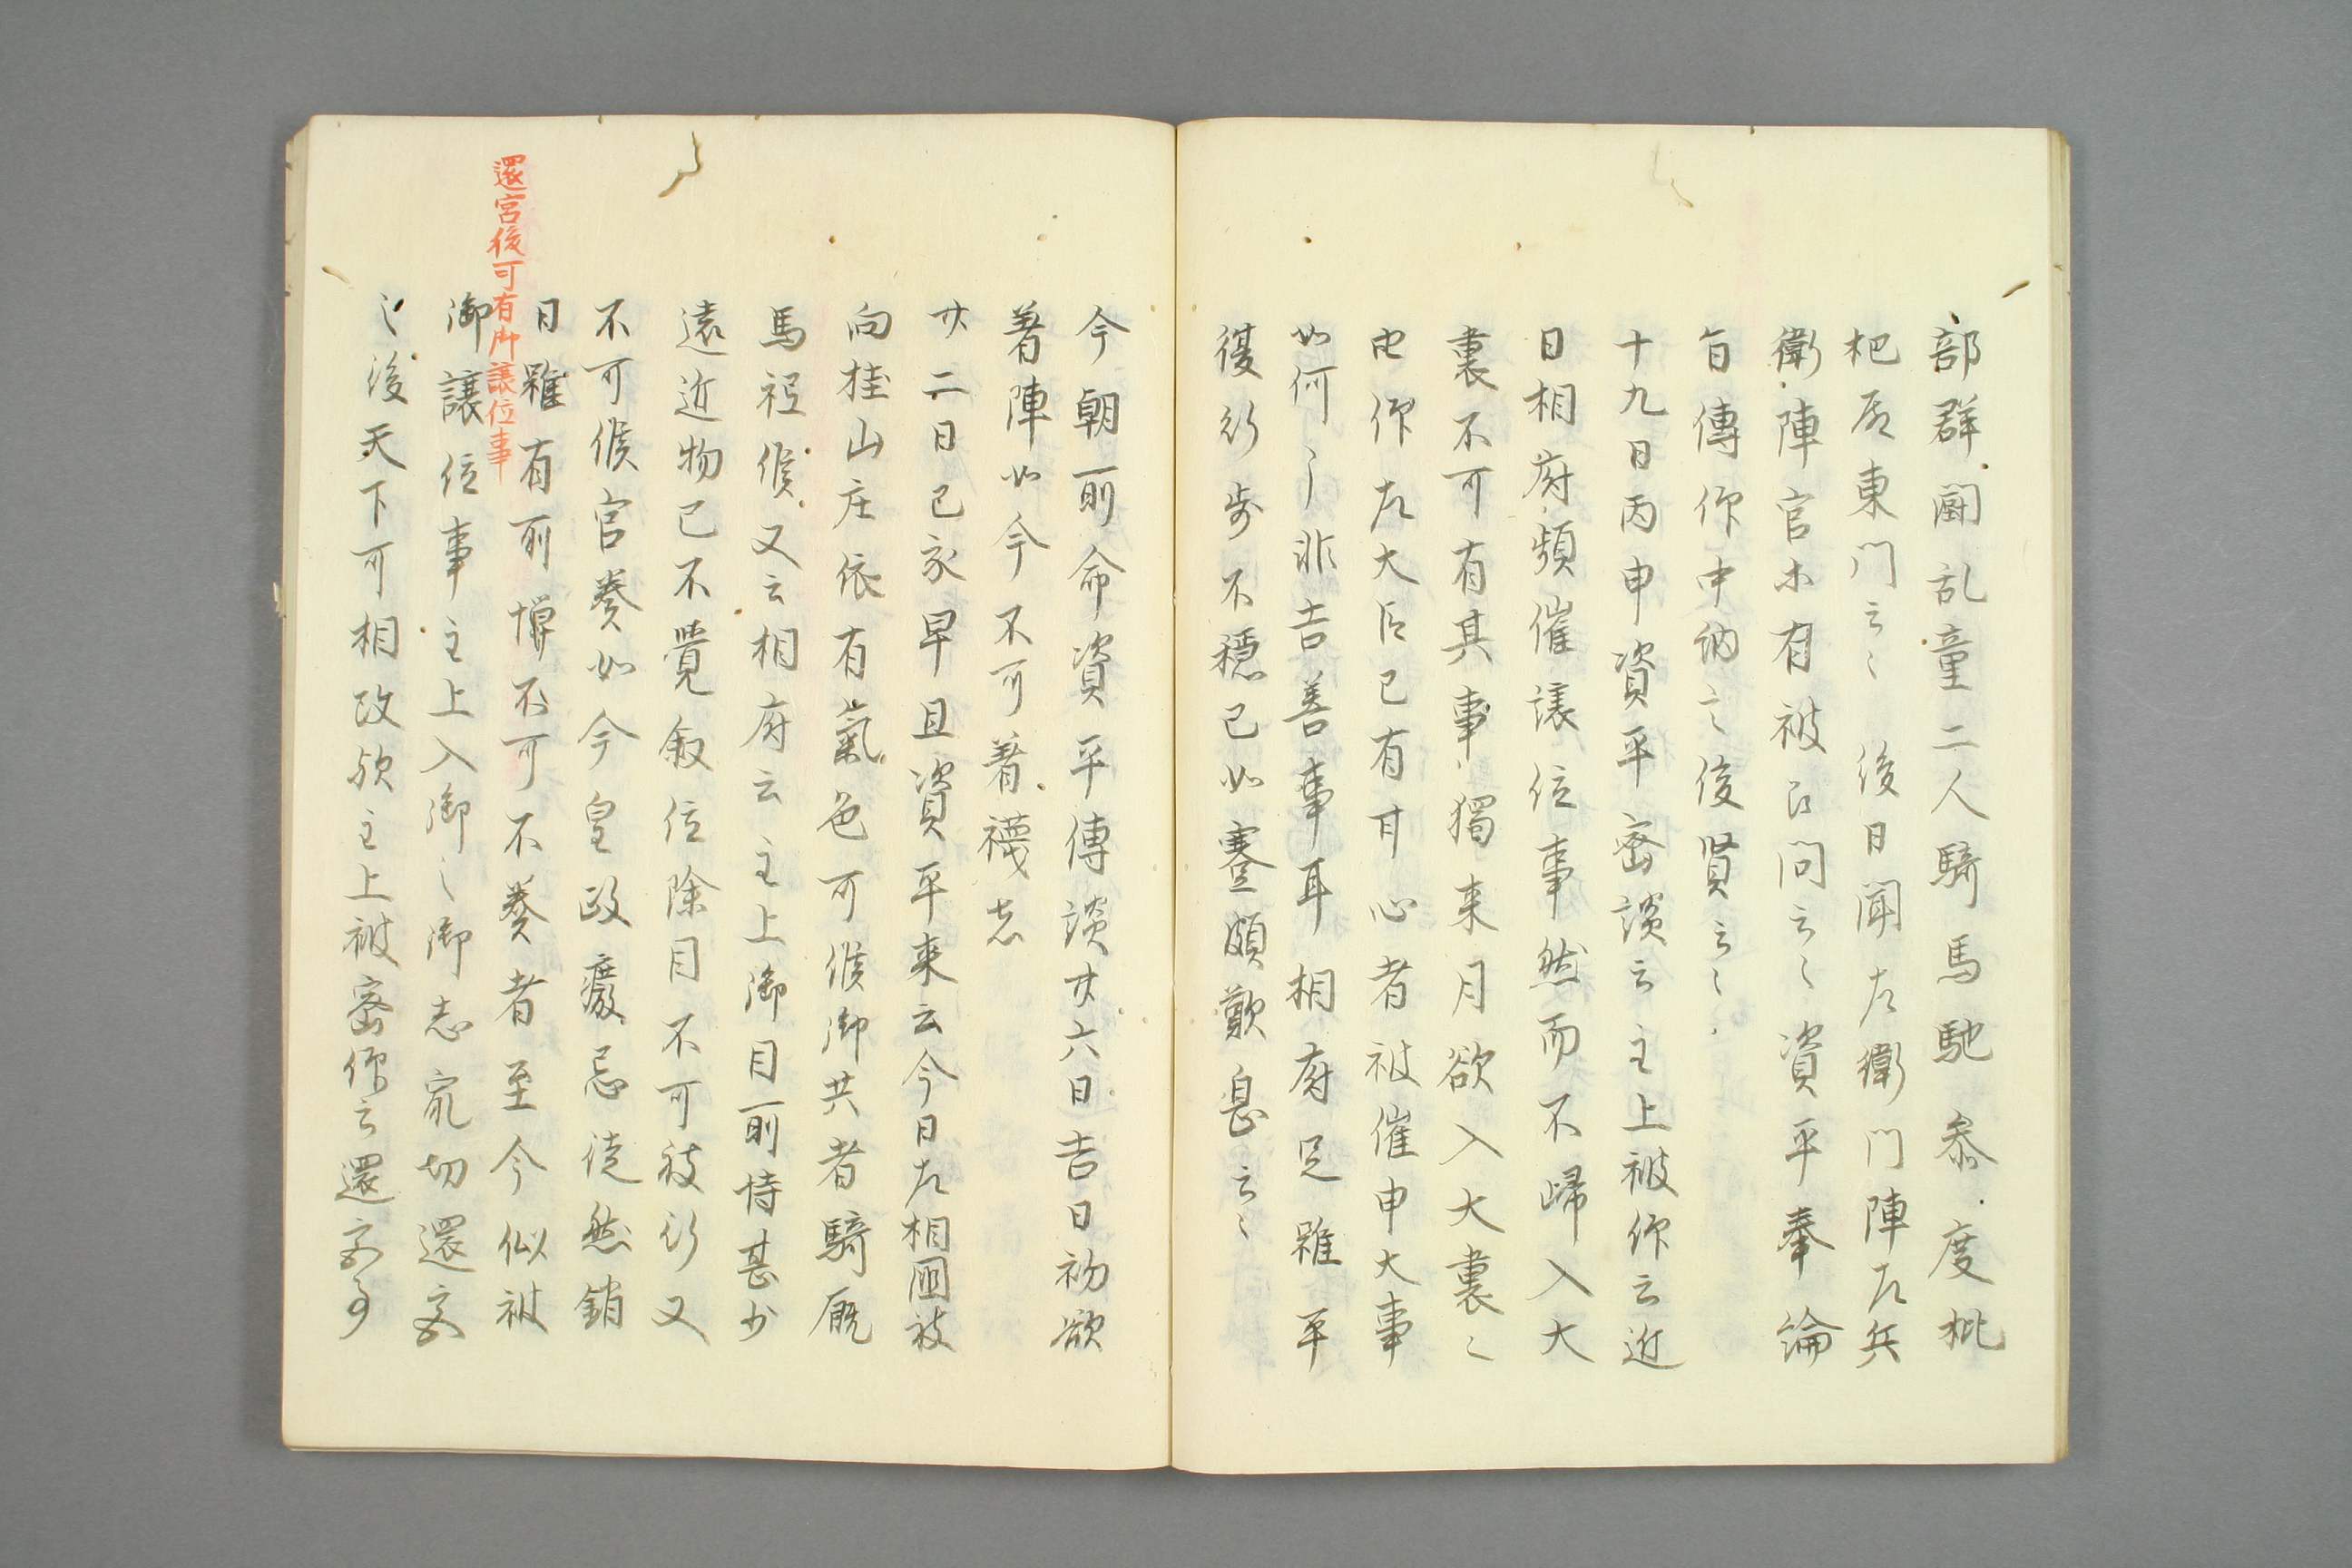 部群闘乱童二人騎馬馳参度枇
杷殿東門云〻後日聞左衛門陣左兵
衛陣官木有被召問云〻資平奉綸
旨傳仰中納言俊賢云〻
十九日丙申資平密談云主上被仰云近
日相府頻催譲位事然而不帰入大
裏不可有其事獨来月欲入大裏〻
也仰左大臣已有甘心者被催申大事
如何〻非吉善事耳相府足雖平
復行歩不穏已如蹇頗歎息云〻
今朝前命資平傳談廿六日吉日初欲
著陣如今不可著襪者
廿二日己亥早旦資平来云今日左相圀被
向桂山庄依有氣色可候御共者騎厩
馬祗候又云相府云主上御目前恃甚少
遠近物已不覚叙位除目不可被行又
不可候官奏如今皇政癈忌徒然銷
日雖有所憚不可不奏者至今似被
還宮後可有御譲位事
御譲位事主上入御〻御志家切還宮
之後天下可相改欤主上被密仰云還宮事